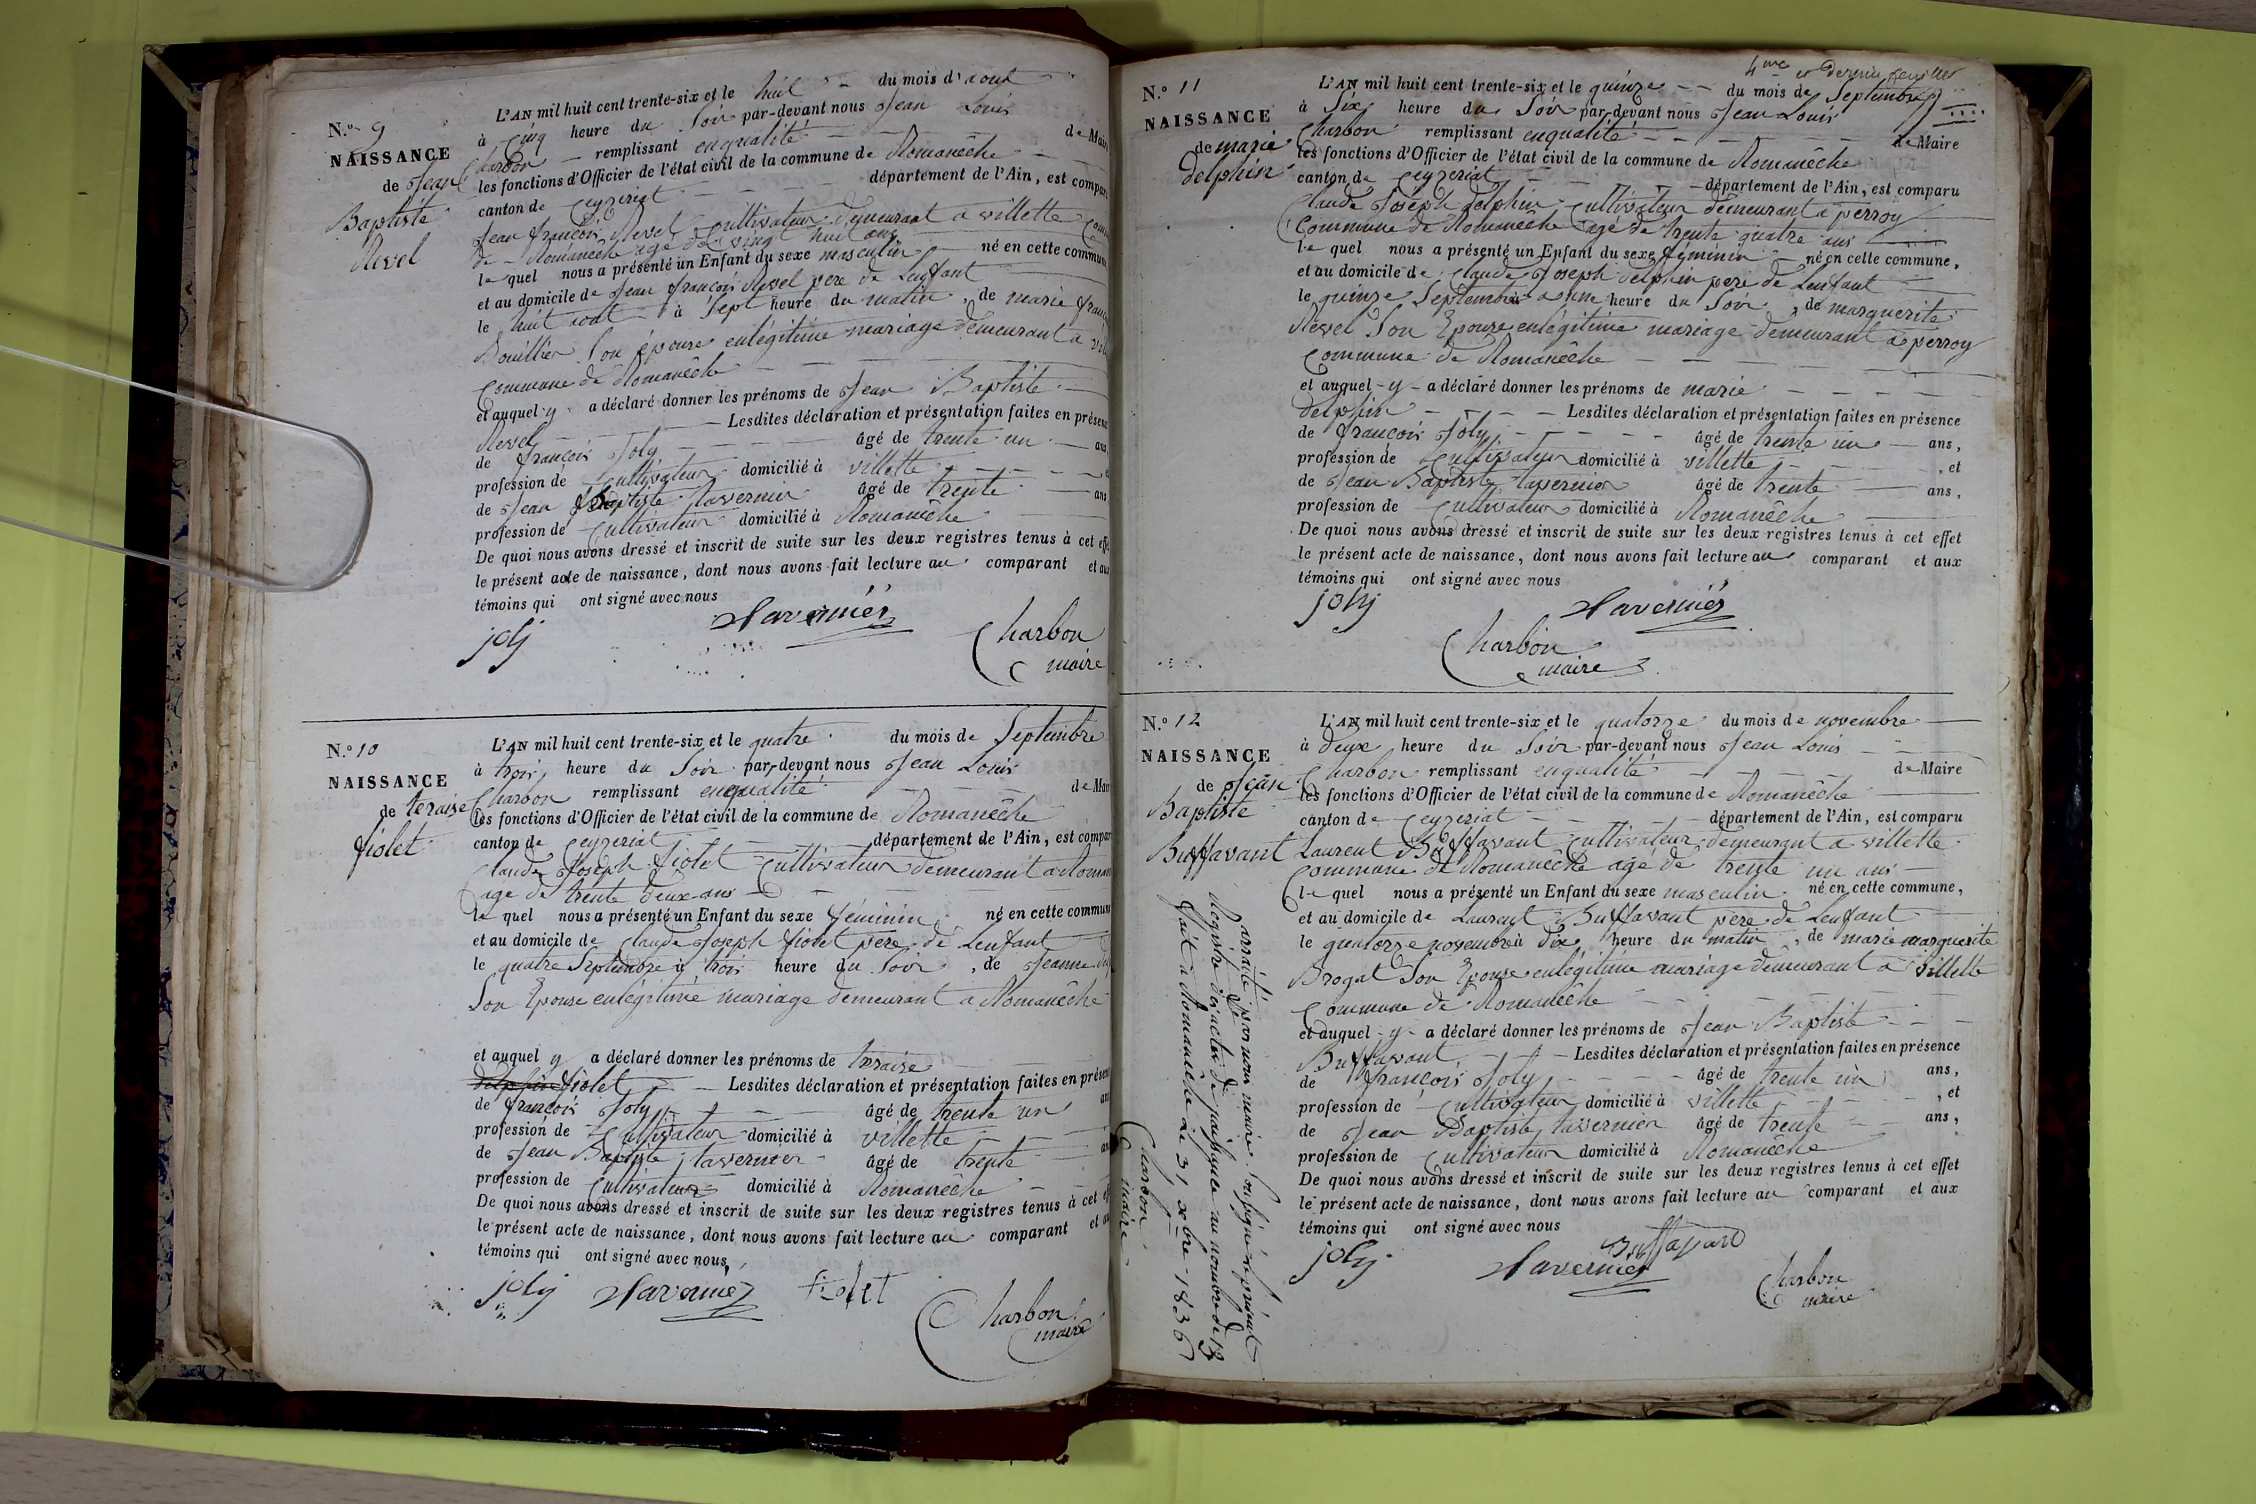 N.° 9
NAISSANCE
de Jean
Baptiste
Revel
L'AN mil huit cent trente-six et le huit du mois d'aout
à cinq heure du Soir par-devant nous Jean Louis
Charbon remplissant enqualité de Maire
les fonctions d'Officier de l'état civil de la commune de Romanêche
canton de Ceyzeriat département de l'Ain, est comparu
Jean françois Revel Cultivateur demeurant a villette
de Romanêche agé de vingt huit ans
le quel nous a présenté un Enfant du sexe masculin né en cette commune
et au domicile de Jean françois Revel pere de Lenfant
le huit aout à Sept heure du matin, de marie
Bouillier Son épouse enlégitime mariage demeurant a
Commune de Romanêche
et auquel y a déclaré donner les prénoms de Jean Baptiste
Revel Lesdites déclaration et présentation faites en
de françois Joly âgé de trente un ans,
profession de Cultivateur domicilié à villette
de Jean Baptiste tavernier âgé de trente ans
profession de Cultivateur domicilié à Romanêche
De quoi nous avons dressé et inscrit de suite sur les deux registres tenus à cet
le présent acte de naissance, dont nous avons fait lecture au comparant et
témoins qui ont signé avec nous
joly Tavernier Charbon
maire
N.° 10
NAISSANCE
de teraise
fiolet
L'AN mil huit cent trente-six et le quatre du mois de Septembre
à trois heure du Soir par-devant nous Jean Louis
Charbon remplissant enqualité de
les fonctions d'Officier de l'état civil de la commune de Romanêche
canton de Ceyzeriat département de l'Ain, est
Claude Joseph fiolet Cultivateur demeurant a
age de trente deux ans
le quel nous a présenté un Enfant du sexe féminin né en cette
et au domicile de Claude Joseph fiolet pere de Lenfant
le quatre Septembre à trois heure du Soir, de Jeanne
Son Epouse enlégitime mariage demeurant a Romanêche
et auquel y a déclaré donner les prénoms de teraise
delphin fiolet Lesdites déclaration et présentation faites en
de françois Joly âgé de trente un
profession de Cultivateur domicilié à villette
de Jean Baptiste tavernier âgé de trente
profession de Cultivateur domicilié à Romanêche
De quoi nous avons dressé et inscrit de suite sur les deux registres tenus à cet
le présent acte de naissance, dont nous avons fait lecture au comparant
témoins qui ont signé avec nous,
joly Tavernier fiolet Charbon
maire
4me et Dernier feuillet
N.° 11
NAISSANCE
de marie
delphin
L'AN mil huit cent trente-six et le quinze du mois de Septembre
à Six heure du Soir par-devant nous Jean Louis
Charbon remplissant enqualité de Maire
les fonctions d'Officier de l'état civil de la commune de Romanêche
canton de Ceyzeriat département de l'Ain, est comparu
Claude Joseph delphin Cultivateur demeurant a perroy
Commune de Romanêche agé de trente quatre ans
le quel nous a présenté un Enfant du sexe féminin né en cette commune,
et au domicile de Claude Joseph delphin pere de Lenfant
le quinze Septembre a une heure du Soir, de marguerite
Revel Son Epouse enlégitime mariage demeurant a perroy
Commune de Romanêche
et auquel y a déclaré donner les prénoms de marie
delphin Lesdites déclaration et présentation faites en présence
de françois Joly âgé de trente un ans,
profession de Cultivateur domicilié à villette, et
de Jean Baptiste tavernier âgé de trente ans,
profession de Cultivateur domicilié à Romanêche
De quoi nous avons dressé et inscrit de suite sur les deux registres tenus à cet effet
le présent acte de naissance, dont nous avons fait lecture au comparant et aux
témoins qui ont signé avec nous
joly Tavernier
Charbon
maire
N.° 12
NAISSANCE
de Jean
Baptiste
Buffavant
L'AN mil huit cent trente-six et le quatorze du mois de novembre
à deux heure du Soir par-devant nous Jean Louis
Charbon remplissant enqualité de Maire
les fonctions d'Officier de l'état civil de la commune de Romanêche
canton de Ceyzeriat département de l'Ain, est comparu
Laurent Buffavant Cultivateur demeurant a villette
Commune de Romanêche agé de trente un ans
le quel nous a présenté un Enfant du sexe masculin né en cette commune,
et au domicile de Laurent Buffavant pere de Lenfant
le quatorze novembre à dix heure du matin, de marie marguerite
Brogat Son Epouse enlégitime mariage demeurant a villette
Commune de Romanêche
et auquel y a déclaré donner les prénoms de Jean Baptiste
Buffavant Lesdites déclaration et présentation faites en présence
de françois Joly âgé de trente un ans,
profession de Cultivateur domicilié à villette, et
de Jean Baptiste tavernier âgé de trente ans,
profession de Cultivateur domicilié à Romanêche
De quoi nous avons dressé et inscrit de suite sur les deux registres tenus à cet effet
le présent acte de naissance, dont nous avons fait lecture au comparant et aux
témoins qui ont signé avec nous
joly Tavernier Buffavand Charbon
maire
arrâté par nous maire Soussigné le présent
Registre des actes de naissance au nombre de
fait a Romanêche Le 31 xbre 1836
Charbon
maire